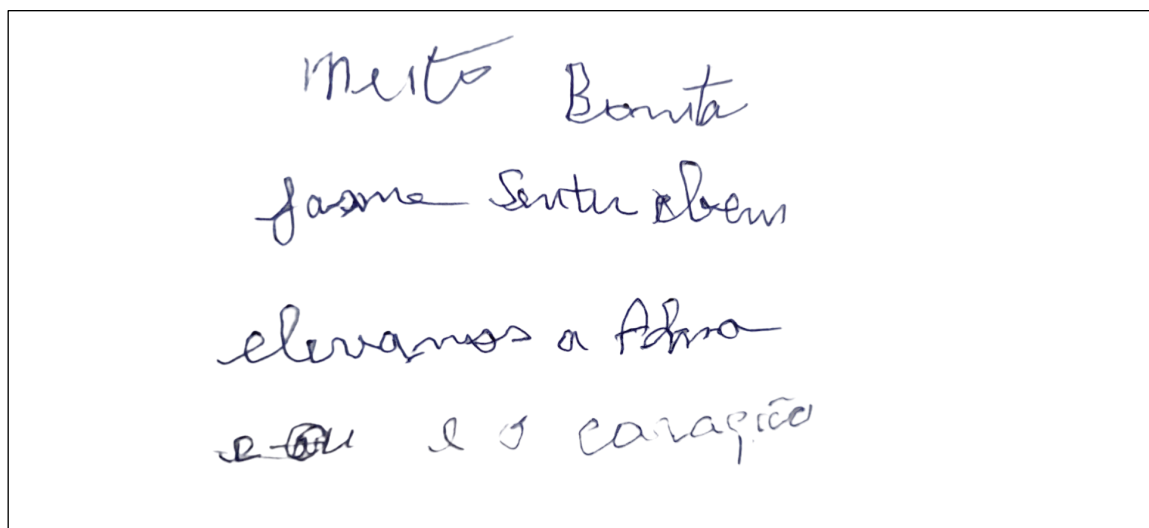 Meito Bonita
fasme Sentir bem
elevamos a Alma
e o caração